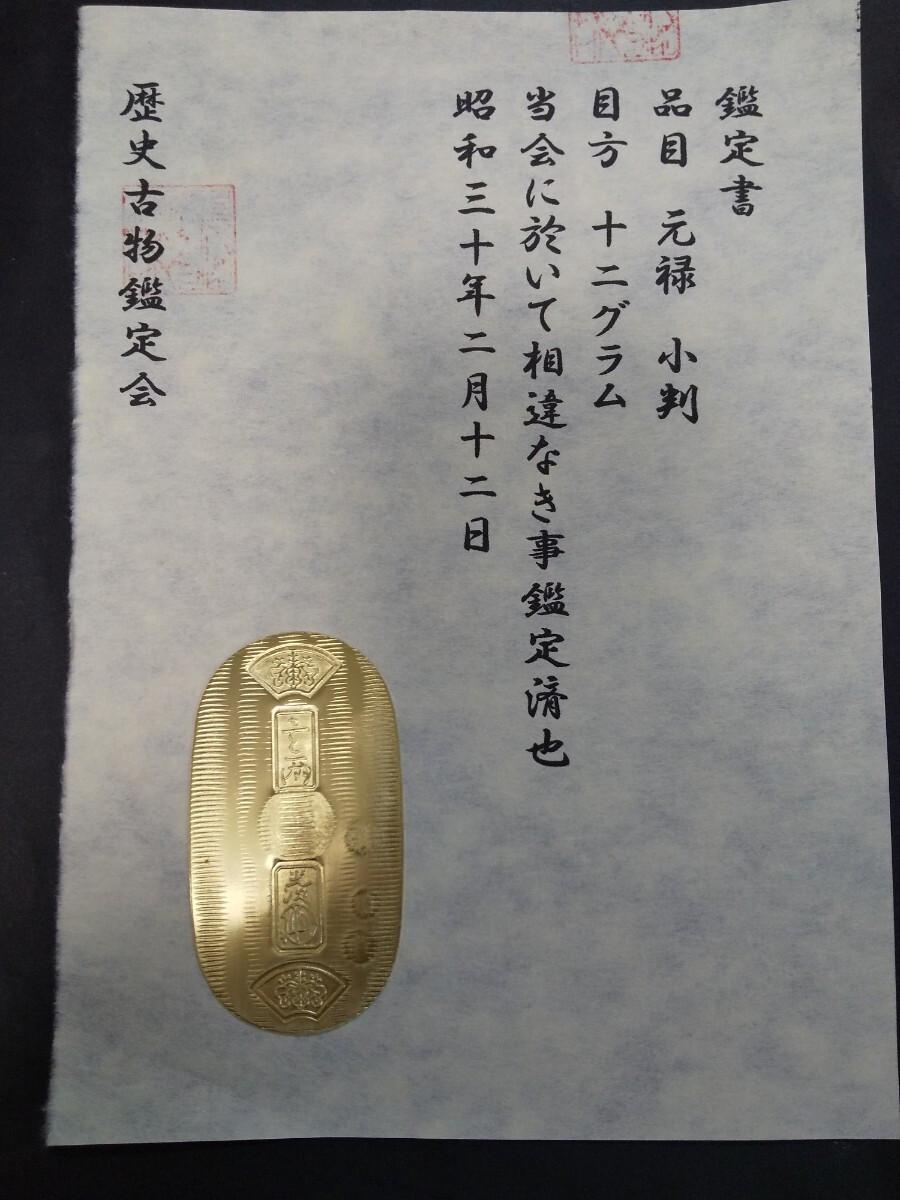 鑑定書
品目　元禄　小判
目方　十二グラム
当会に於いて相違なき事鑑定済也
昭和三十年二月十二日
歴史古物鑑定会